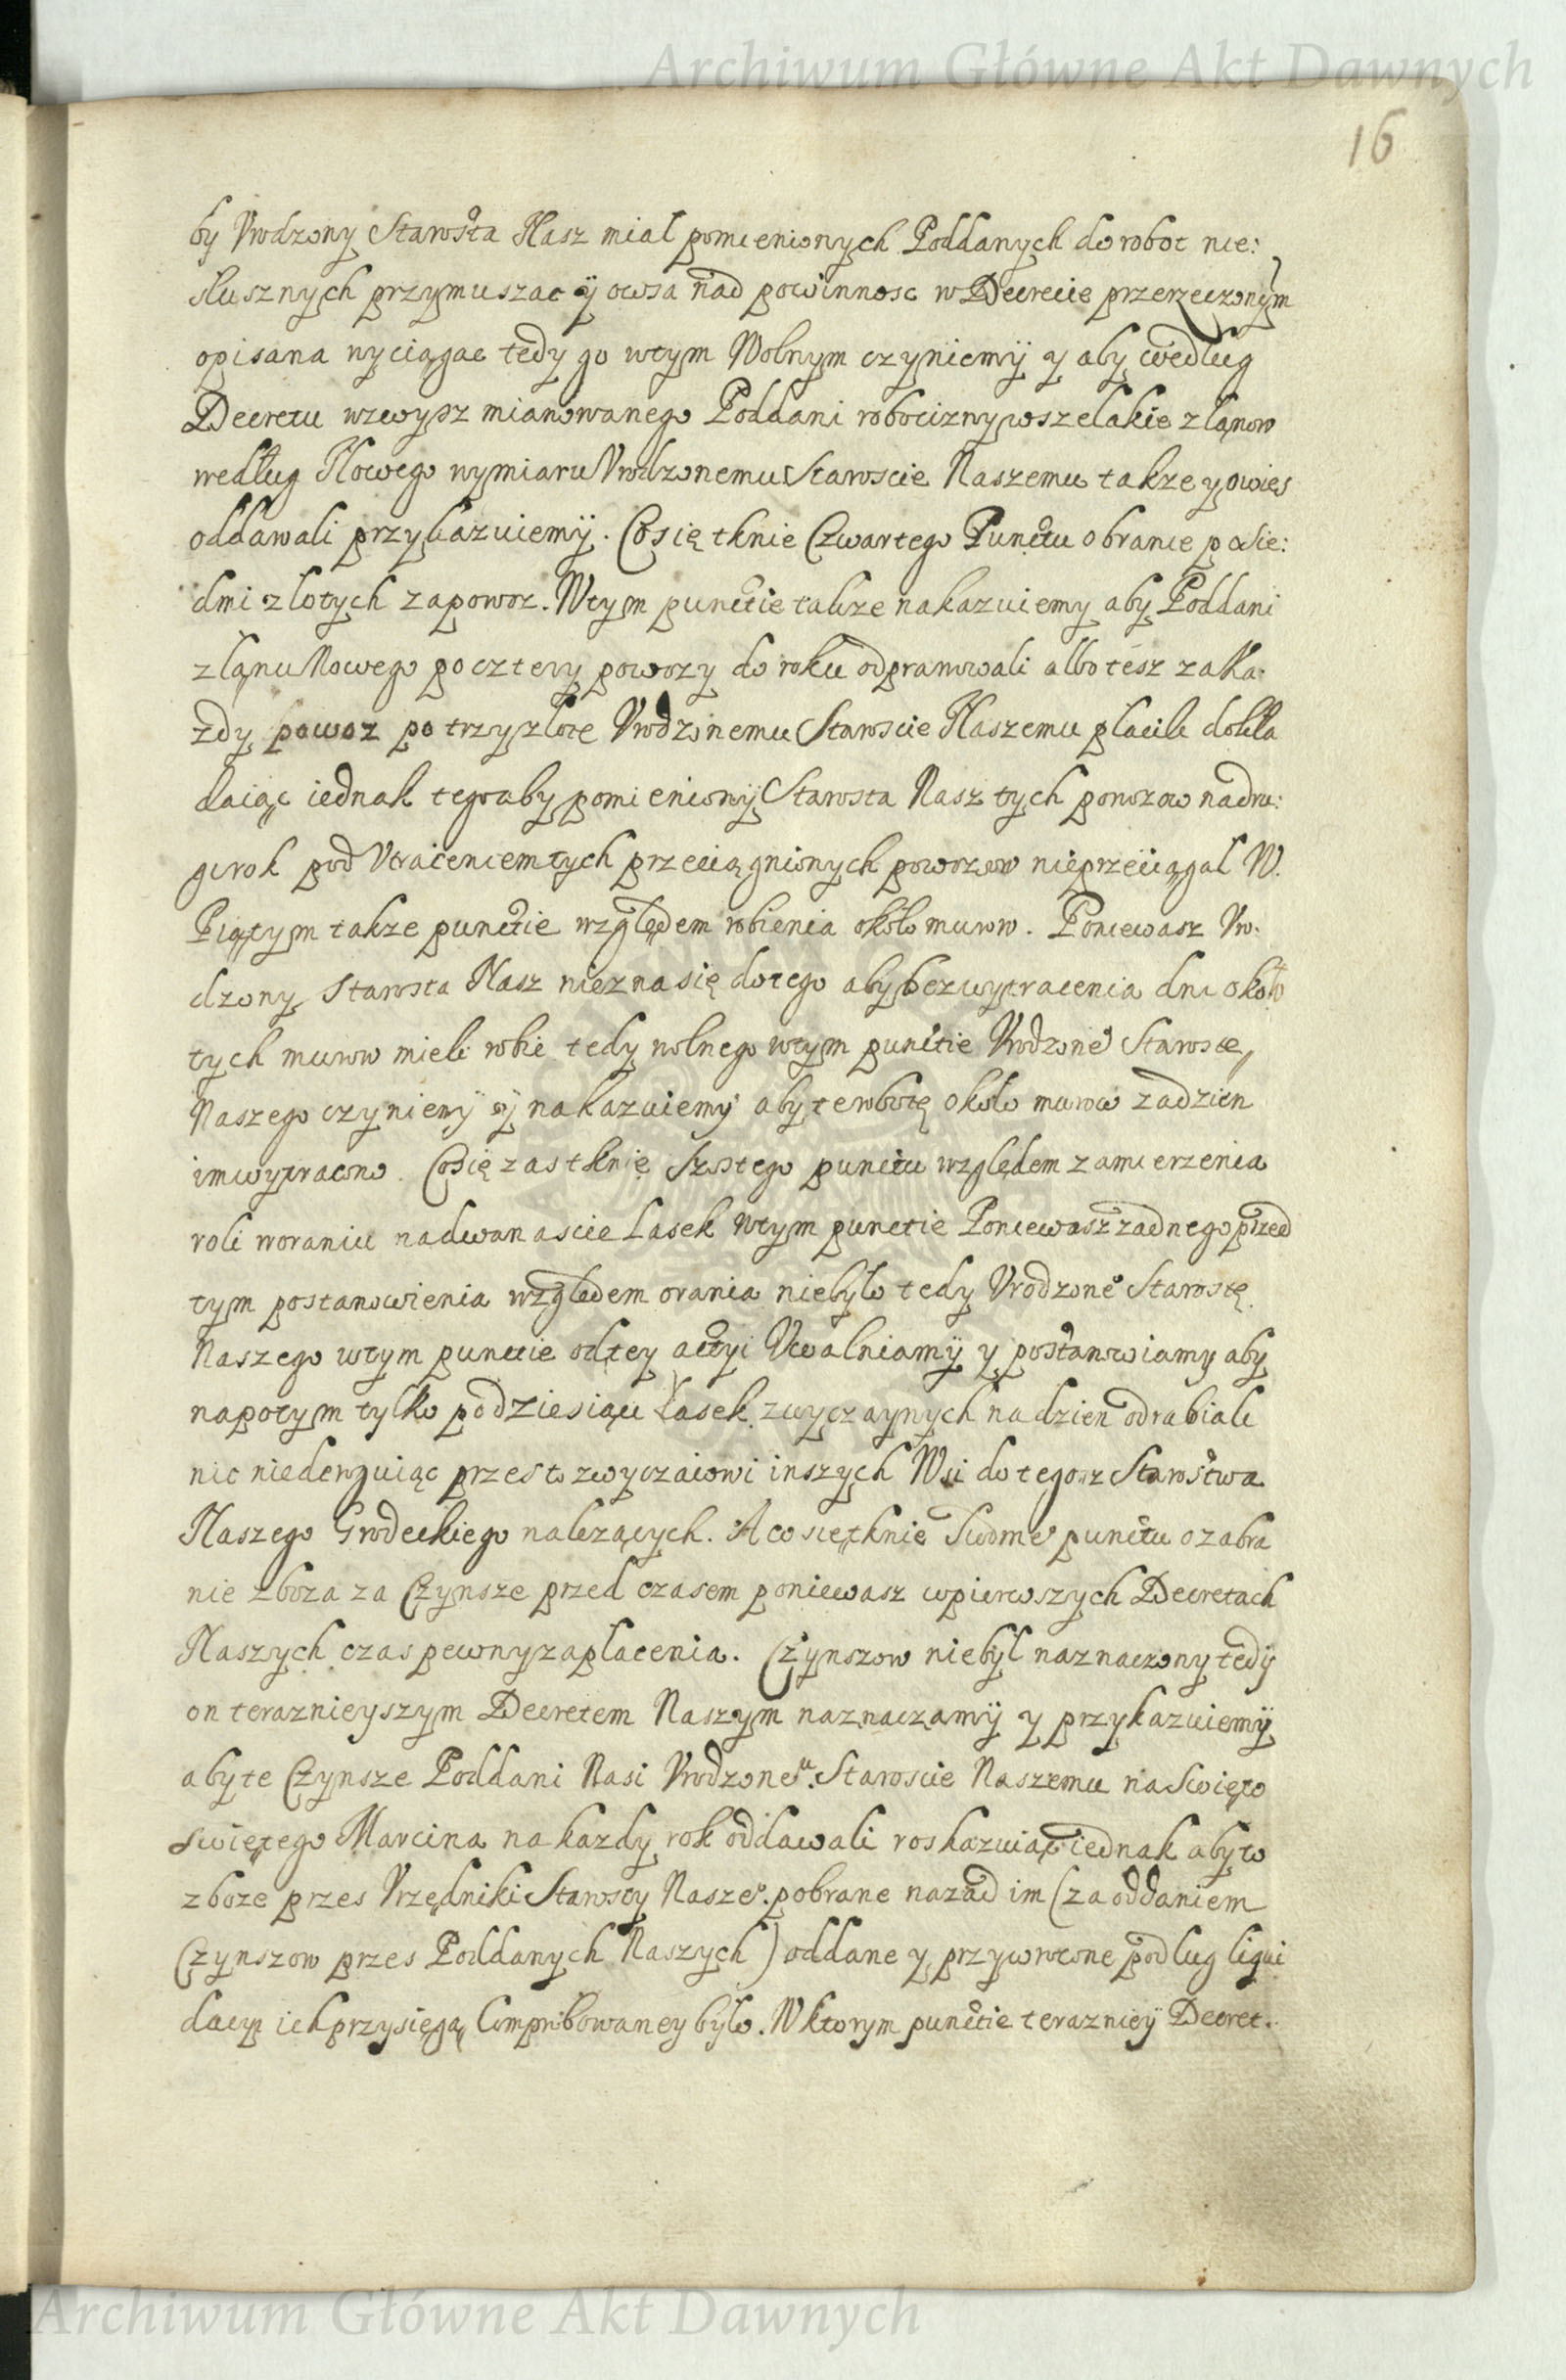 Archiwum Główne Akt Dawnych
16
by Vrodzony Starosta Nasz mial pomienionych Poddanych do robot nie:
slusznych przymuszac ÿ owsa nad powinnosc w Decrecie przerzeczonym
opisana wyciągac tedy go wtym Wolnym czyniemÿ y aby według
Decretu wzwysz mianowanego Poddani robocizny wszelakie z lanow
według Nowego wymiaru Vrodzonemu Staroscie Naszemu takze y owies
oddawali przykazuiemÿ. Co się tknie Czwartego Punctu o branie po sie:
dmi zlotych za powoz. Wtym punctie takze nakazuiemy aby Poddani
z lanu Nowego po cztery powozy do roku odprawowali albo tesz za ka:
zdy powoz po trzy zlote Vrodzonemu Staroscie Naszemu placili dokla
daiąc iednak tego aby pomienionÿ Starosta Nasz tych powozow na dru:
gi rok pod Vtraceniem tych przeciągnionych powozow nieprzeciągal W.
Piątym takze punctie względem robienia około murow. Poniewasz Vro:
dzony Starosta Nasz niezna się do tego aby bez wytracenia dni około
tych murow mieli robic tedy wolnego wtym punctie Vrodzone° Starostę
Naszego czyniemÿ ÿ nakazuiemÿ aby te robotę około murow za dzien
im wytracono. Co się zas tknie Szostego punctu względem zamierzenia
roli w oraniu na dwanascie Lasek Wtym punctie Poniewasz zadnego przed
tym postanowienia względem orania niebyło tedy Vrodzone° Starostę
Naszego wtym punctie od tey actyi Vwalniamÿ y postanowiamy aby
napotym tylko po dziesiąci Łasek zwyczaynych na dzien odrabiali
nic niederoguiąc przes to zwyczaiowi inszych Wsi do tegosz Starostwa
Naszego Grodeckiego nalezących. A co się tknie Siodme° punctu o zabra
nie zboza za Czynsze przed czasem poniewasz w pierwszych Decretach
Naszych czas pewny zaplacenia. Czynszow niebyl naznaczony tedÿ
on teraznieyszym Decretem Naszym naznaczamÿ y przykazuiemÿ
aby te Czynsze Poddani Nasi Vrodzone.ͧ Staroscie Naszemu na Swięto
Swiętego Marcina na kazdy rok oddawali roskazuiąc iednak aby to
zboze przes Vrzędniki Starosty Nasze°. pobrane nazad im (za oddaniem
Czynszow przes Poddanych Naszych) oddane y przywrocone podlug liqui
dacyi ich przysięgą Comprobowaney bylo. W ktorym punctie teraznieÿ Decret.
Archiwum Główne Akt Dawnych